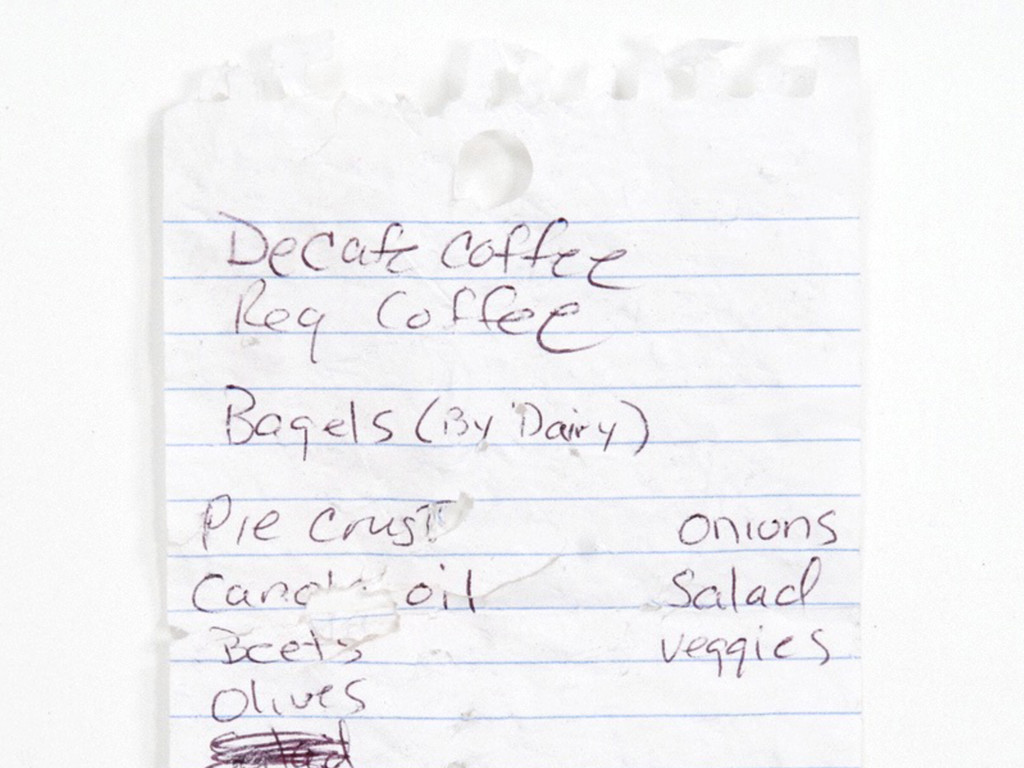 Decafe Coffee
Reg Coffee
Bagels (By Dairy)
Pie Crust
oil
Beets
Olives
Onions
Salad
veggies